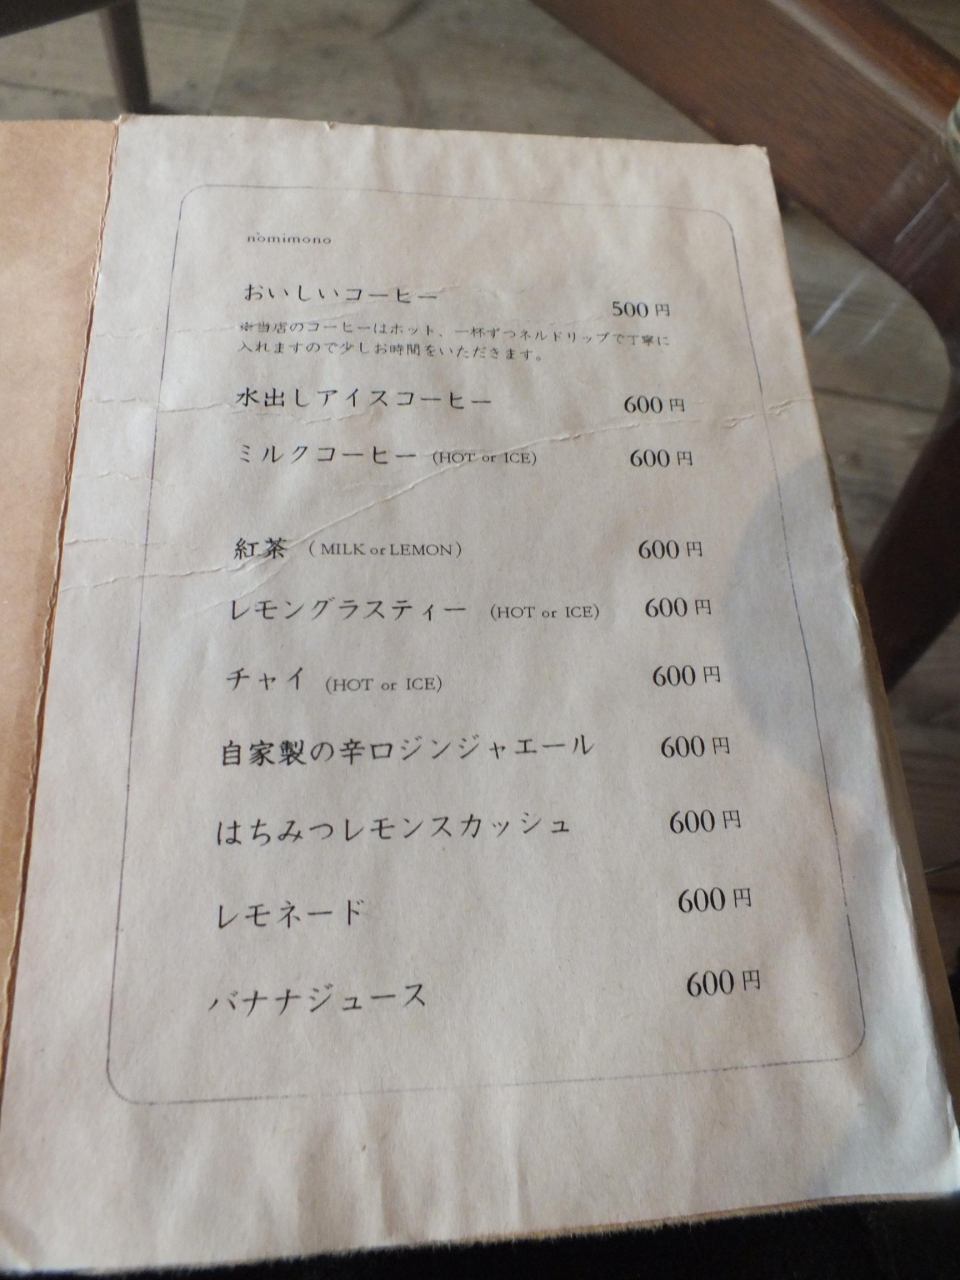 nomimono
おいしいコーヒー 500円
※当店のコーヒーはホット、一杯ずつネルドリップで丁寧に
入れますので少しお時間をいただきます。
水出しアイスコーヒー 600円
ミルクコーヒー (HOT or ICE) 600円
紅茶 (MILK or LEMON) 600円
レモングラスティー (HOT or ICE) 600円
チャイ (HOT or ICE) 600円
自家製の辛口ジンジャエール 600円
はちみつレモンスカッシュ 600円
レモネード 600円
バナナジュース 600円